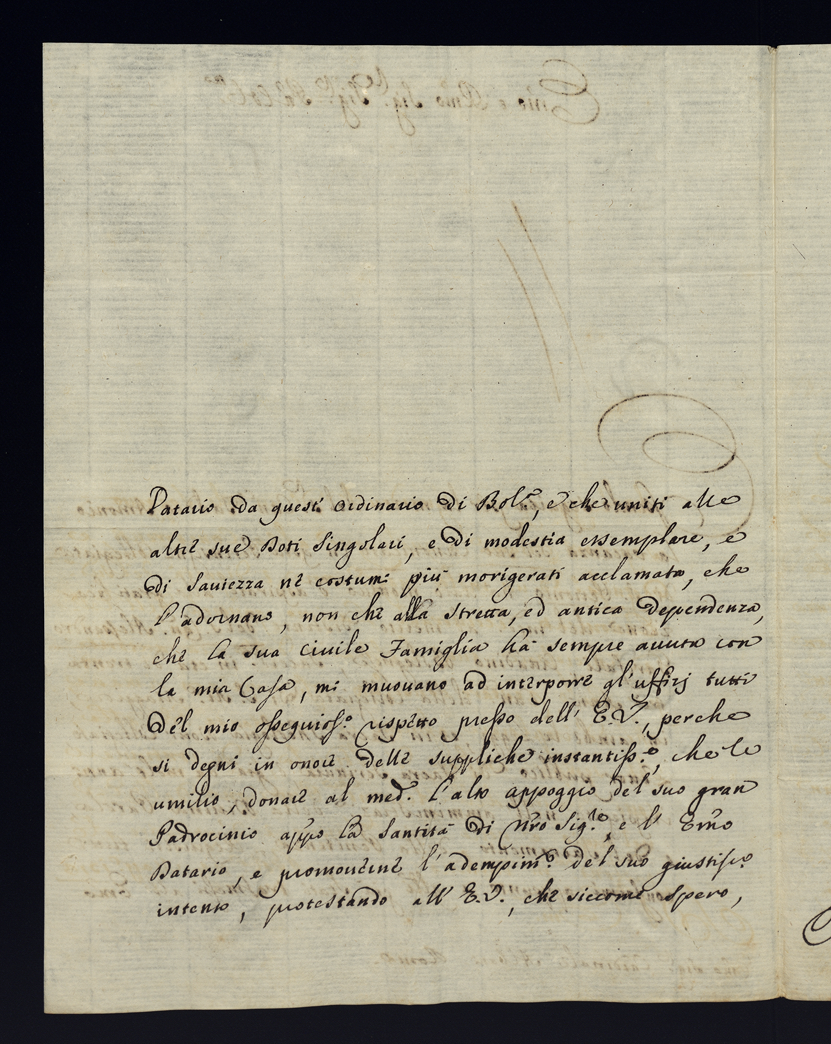 Datario da quest' ordinario di Bol.ª, e che uniti alle
altre sue Doti singolari, e di modestia essemplare, e
di saviezza ne costumi più morigerati acclamata, che
l'adornano, non che alla stretta, ed antica dependenza,
che la sua civile Famiglia hà sempre avuta con
la mia Casa, mi muovano ad interporre gl'uffizj tutti
del mio ossequios.º rispetto presso dell' E.V., perche
si degni in onore delle suppliche instantiss.e, che le
umilio, donare al med.º l'alto appoggio del suo gran
Padrocinio appo la Santità di Nro Sig.re, e l' Emo
Datario, e promoverne l'adempim.º del suo giustiss.º
intento, protestando all' E.V., che siccome spero,